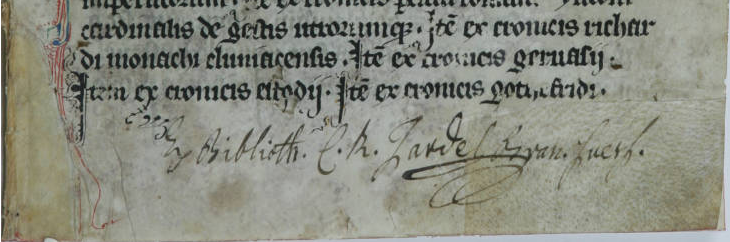 cardinalis de gestis utrorumqꝫ. Itē ex cronicis richar
di monachi cluniacensis. Itē ex cronicis geruasij.
Item ex cronicis Itē ex cronicis gotifridi.
Ex Biblioth. C. R. Jardel Bran. Suess.